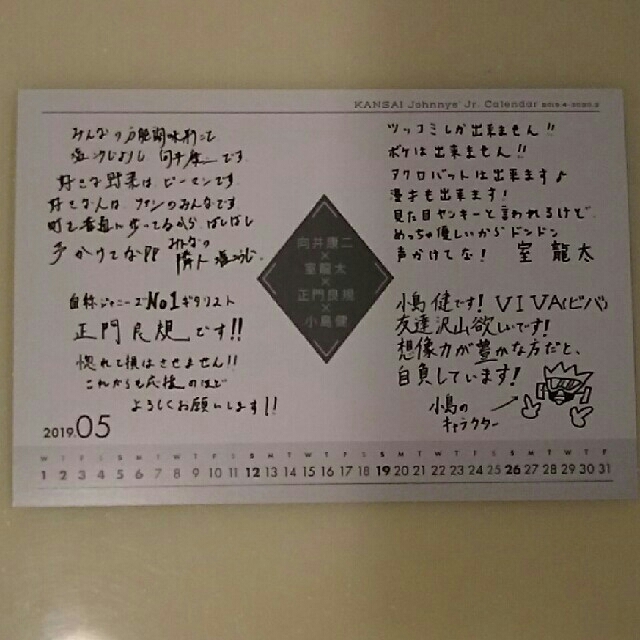 KANSAI Johnnys' Jr. Calendar 2019.4-2020.3
みんなの
塩 向井康二です
好きな野菜は ピーマンです
好きな人は ファンのみんなです
町で普通に歩ってるから ばしばし
かけてな みんなの
隣人
ツッコミしか出来ません!!
ボケは出来ません!!
アクロバットは出来ます♪
漫才も出来ます!
見た目ヤンキーと言われるけど、
めっちゃ優しいからドンドン
声かけてな! 室 龍太
向井康二
×
室龍太
×
正門良規
×
小島健
自称ジャニーズNo1ギタリスト
正門良規です!!
惚れて損はさせません!!
これからも応援のほど
よろしくお願いします!!
小島健です! VIVA(ビバ)
友達沢山欲しいです!
想像力が豊かな方だと、
自負しています!
小島の
キャラクター
2019.05
W T F S S M T W T F S S M T W T F S S M T W T F S S M T W T F
1 2 3 4 5 6 7 8 9 10 11 12 13 14 15 16 17 18 19 20 21 22 23 24 25 26 27 28 29 30 31